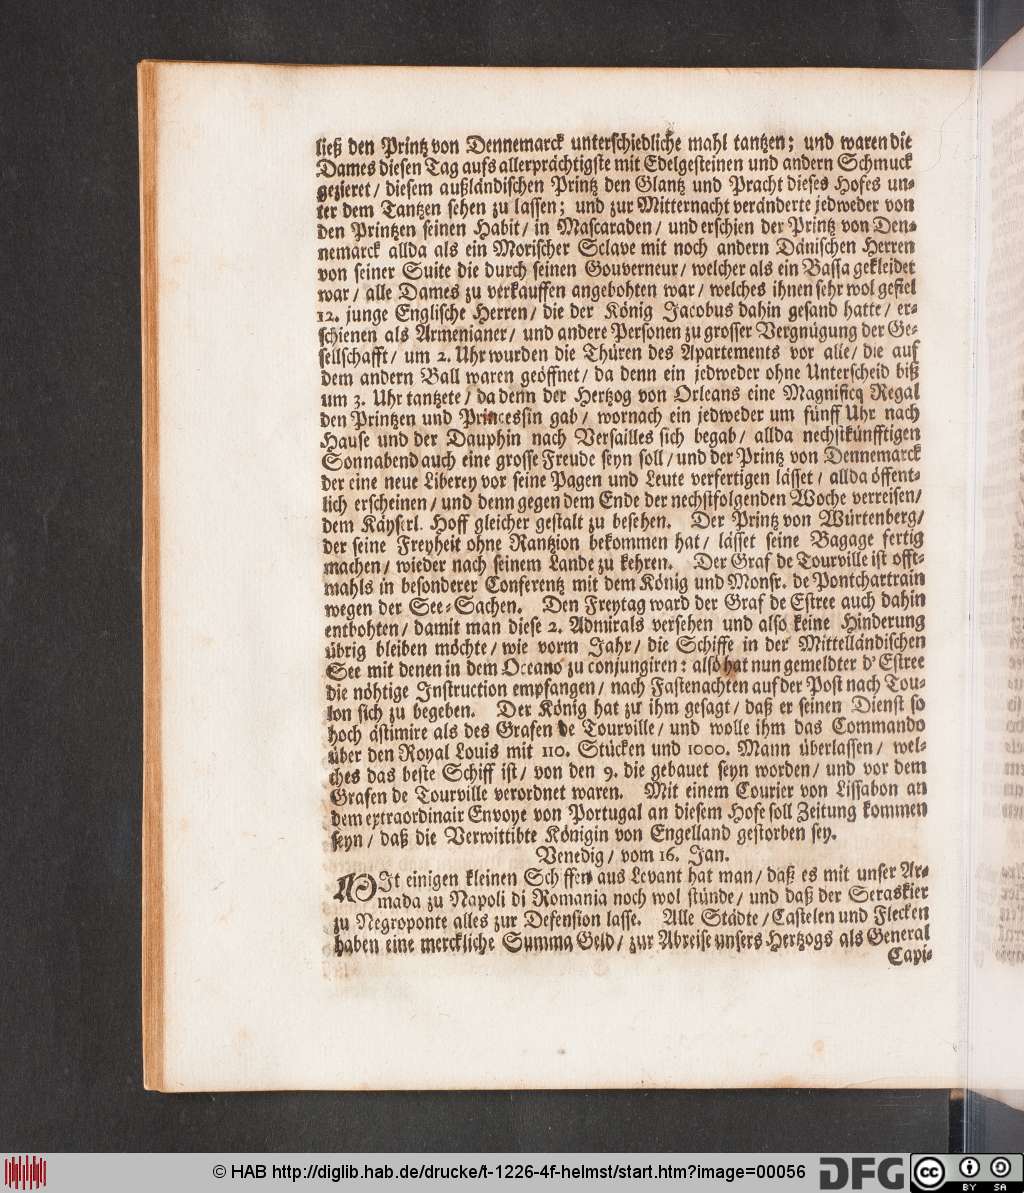 ließ den Printz von Dennemarck unterschiedliche mahl tantzen; und waren die
Dames diesen Tag aufs allerprächtigste mit Edelgesteinen und andern Schmuck
gezieret / diesem außländischen Printz den Glantz und Pracht dieses Hofes un-
ter dem Tantzen sehen zu lassen; und zur Mitternacht veränderte jedweder von
den Printzen seinen Habit / in Mascaraden / und erschien der Printz von Den-
nemarck allda als ein Morischer Sclave mit noch andern Dänischen Herren
von seiner Suite die durch seinen Gouverneur / welcher als ein Bassa gekleidet
war / alle Dames zu verkauffen angebohten war / welches ihnen sehr wol gefiel
12. junge Englische Herren / die der König Jacobus dahin gesand hatte / er-
schienen als Armenianer / und andere Personen zu grosser Vergnügung der Ge-
sellschafft / um 2. Uhr wurden die Thüren des Apartements vor alle / die auf
dem andern Ball waren geöffnet / da denn ein jedweder ohne Unterscheid biß
um 3. Uhr tantzete / da denn der Hertzog von Orleans eine Magnificq Regal
den Printzen und Princessin gab / wornach ein jedweder um fünff Uhr nach
Hause und der Dauphin nach Versailles sich begab / allda nechstkünfftigen
Sonnabend auch eine grosse Freude seyn soll / und der Printz von Dennemarck
der eine neue Liberey vor seine Pagen und Leute verfertigen lässet / allda öffent-
lich erscheinen / und denn gegen dem Ende der nechstfolgenden Woche verreisen /
dem Käyserl. Hoff gleicher gestalt zu besehen. Der Printz von Würtenberg /
der seine Freyheit ohne Rantzion bekommen hat / lässet seine Bagage fertig
machen / wieder nach seinem Lande zu kehren. Der Graf de Tourville ist offt-
mahls in besonderer Conferentz mit dem König und Monsr. de Pontchartrain
wegen der See-Sachen. Den Freytag ward der Graf de Estree auch dahin
entbohten / damit man diese 2. Admirals versehen und also keine Hinderung
übrig bleiben möchte / wie vorm Jahr / die Schiffe in der Mittelländischen
See mit denen in dem Oceano zu conjungiren: also hat nun gemeldter d'Estree
die nöhtige Instruction empfangen / nach Fastenachten auf der Post nach Tou-
lon sich zu begeben. Der König hat zu ihm gesagt / daß er seinen Dienst so
hoch ästimire als des Grafen de Tourville / und wolle ihm das Commando
über den Royal Louis mit 110. Stücken und 1000. Mann überlassen / wel-
ches das beste Schiff ist / von den 9. die gebauet seyn worden / und vor dem
Grafen de Tourville verordnet waren. Mit einem Courier von Lissabon an
dem extraordinair Envoye von Portugal an diesem Hofe soll Zeitung kommen
seyn / daß die Verwittibte Königin von Engelland gestorben sey.
Venedig / vom 16. Jan.
MIt einigen kleinen Schiffen aus Levant hat man / daß es mit unser Ar-
mada zu Napoli di Romania noch wol stünde / und daß der Seraskier
zu Negroponte alles zur Defension lasse. Alle Städte / Castelen und Flecken
haben eine merckliche Summa Geld / zur Abreise unsers Hertzogs als General
Capi-
© HAB http://diglib.hab.de/drucke/t-1226-4f-helmst/start.htm?image=00056 DFG cc BY SA